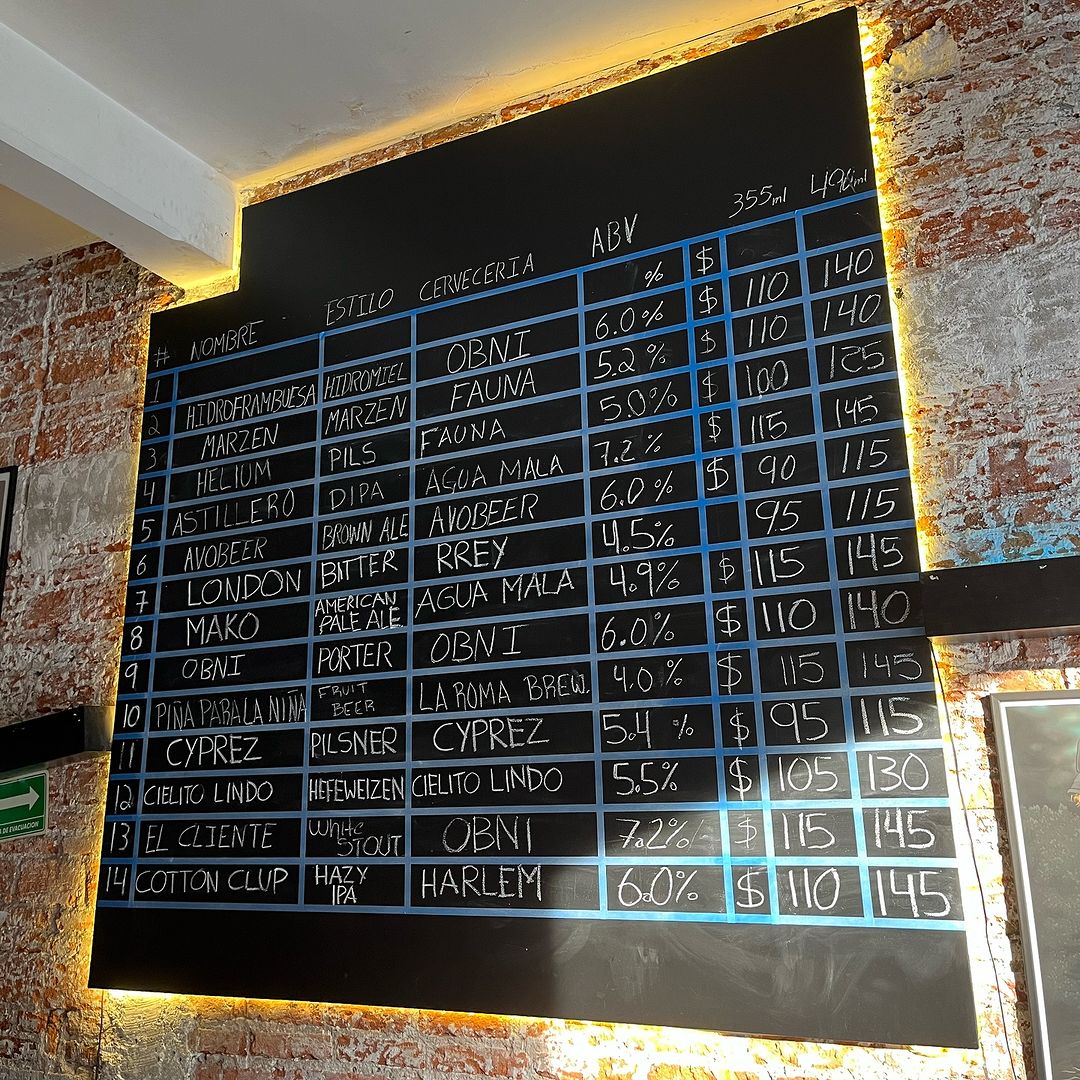 # NOMBRE ESTILO CERVECERIA ABV 355ml
1 % $
2 HIDROFRAMBUESA HIDROMIEL OBNI 6.0% $ 110 140
3 MARZEN MARZEN FAUNA 5.2% $ 110 140
4 HELIUM PILS FAUNA 5.0% $ 100 125
5 ASTILLERO DIPA AGUA MALA 7.2% $ 115 145
6 AVOBEER BROWN ALE AVOBEER 6.0% $ 90 115
7 LONDON BITTER RREY 4.5% 95 115
8 MAKO AMERICAN PALE ALE AGUA MALA 4.9% $ 115 145
9 OBNI PORTER OBNI 6.0% $ 110 140
10 PIÑA PARA LA NIÑA FRUIT BEER LA ROMA BREW. 4.0% $ 115 145
11 CYPREZ PILSNER CYPREZ 5.4% $ 95 115
12 CIELITO LINDO HEFEWEIZEN CIELITO LINDO 5.5% $ 105 130
13 EL CLIENTE White STOUT OBNI 7.2% $ 115 145
14 COTTON CLUP HAZY IPA HARLEM 6.0% $ 110 145
DE EVACUACIÓN